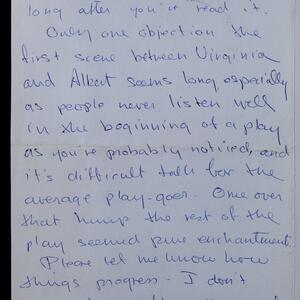 long after you've read it.
Only one objection the
first scene between Virginia
and Albert seems long especially
as people never listen well
in the beginning of a play
as you're probably noticed, and
it's difficult talk for the
average play-goer. Once over
that hump the rest of the
play seemed pure enchantment.
Please let me know how
things progress - I don't